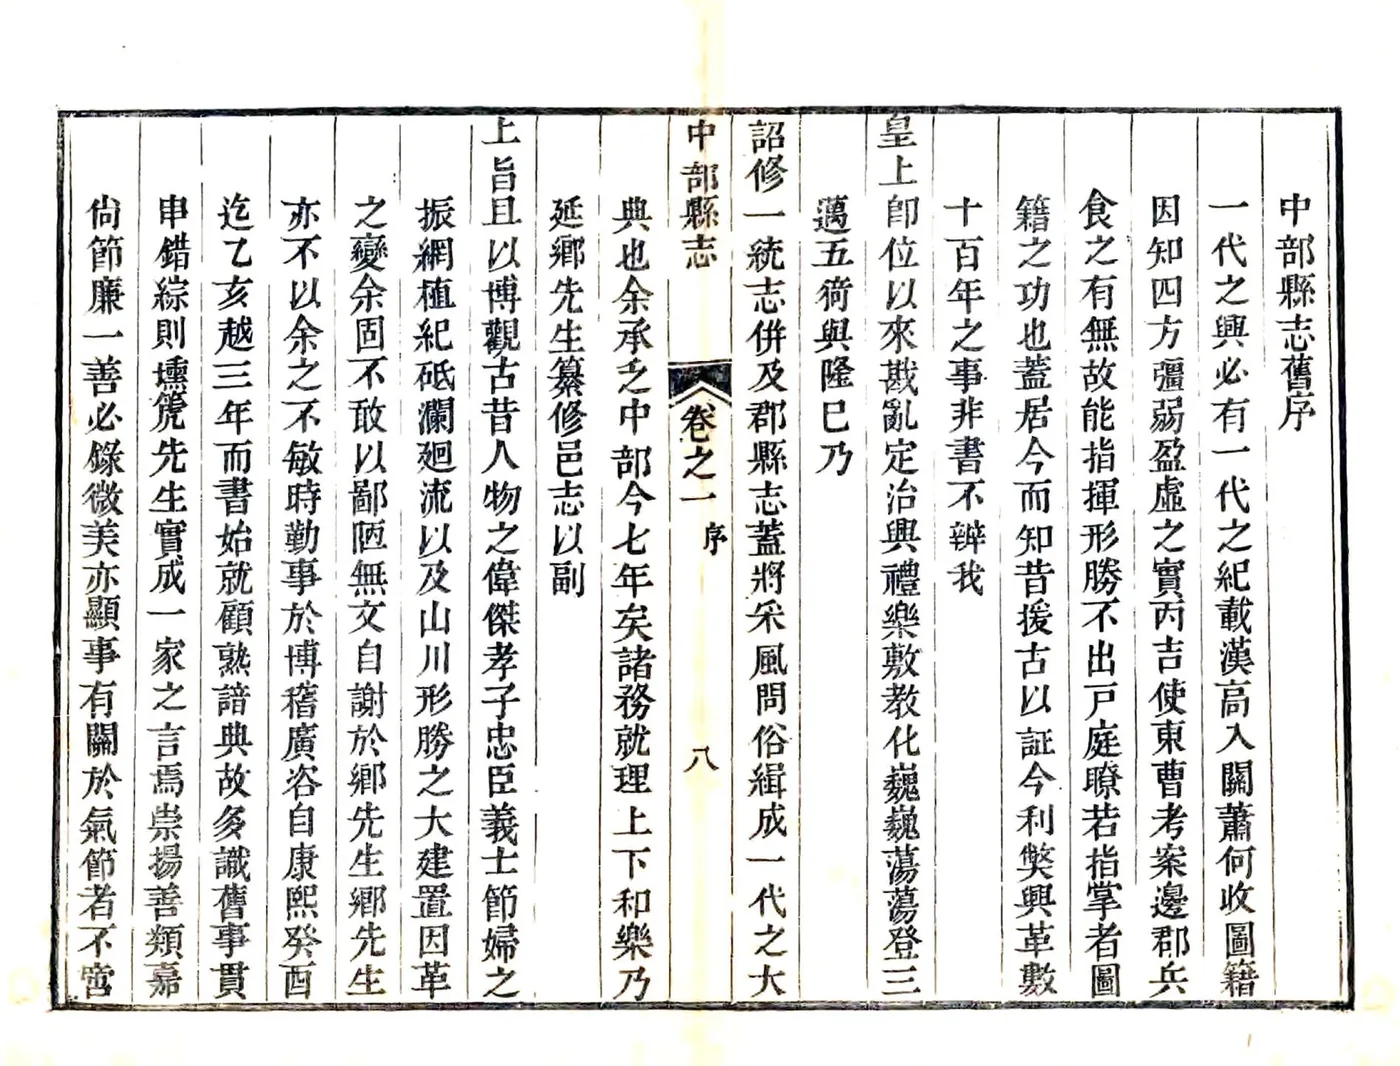 中部縣志舊序
一代之興必有一代之紀載漢高入關蕭何收圖籍
因知四方彊弱盈虛之實丙吉使東曹考案邊郡兵
食之有無故能指揮形勝不出戸庭瞭若指掌者圖
籍之功也蓋居今而知昔援古以証今利獘興革數
十百年之事非書不辨我
皇上卽位以來戡亂定治興禮樂敷教化巍巍蕩蕩登三
邁五猗與隆巳乃
詔修一統志併及郡縣志蓋將采風問俗緝成一代之大
中部縣志
卷之一
序
八
典也余承乏中部今七年矣諸務就理上下和樂乃
延鄉先生纂修邑志以副
上旨且以博觀古昔人物之偉傑孝子忠臣義士節婦之
振綱植紀砥瀾廻流以及山川形勝之大建置因革
之變余固不敢以鄙陋無文自謝於鄉先生鄉先生
亦不以余之不敏時勤事於博稽廣咨自康熙癸酉
迄乙亥越三年而書始就顧熟諳典故多識舊事貫
串錯綜則壎篪先生實成一家之言焉崇揚善類嘉
尙節廉一善必錄微美亦顯事有關於氣節者不啻